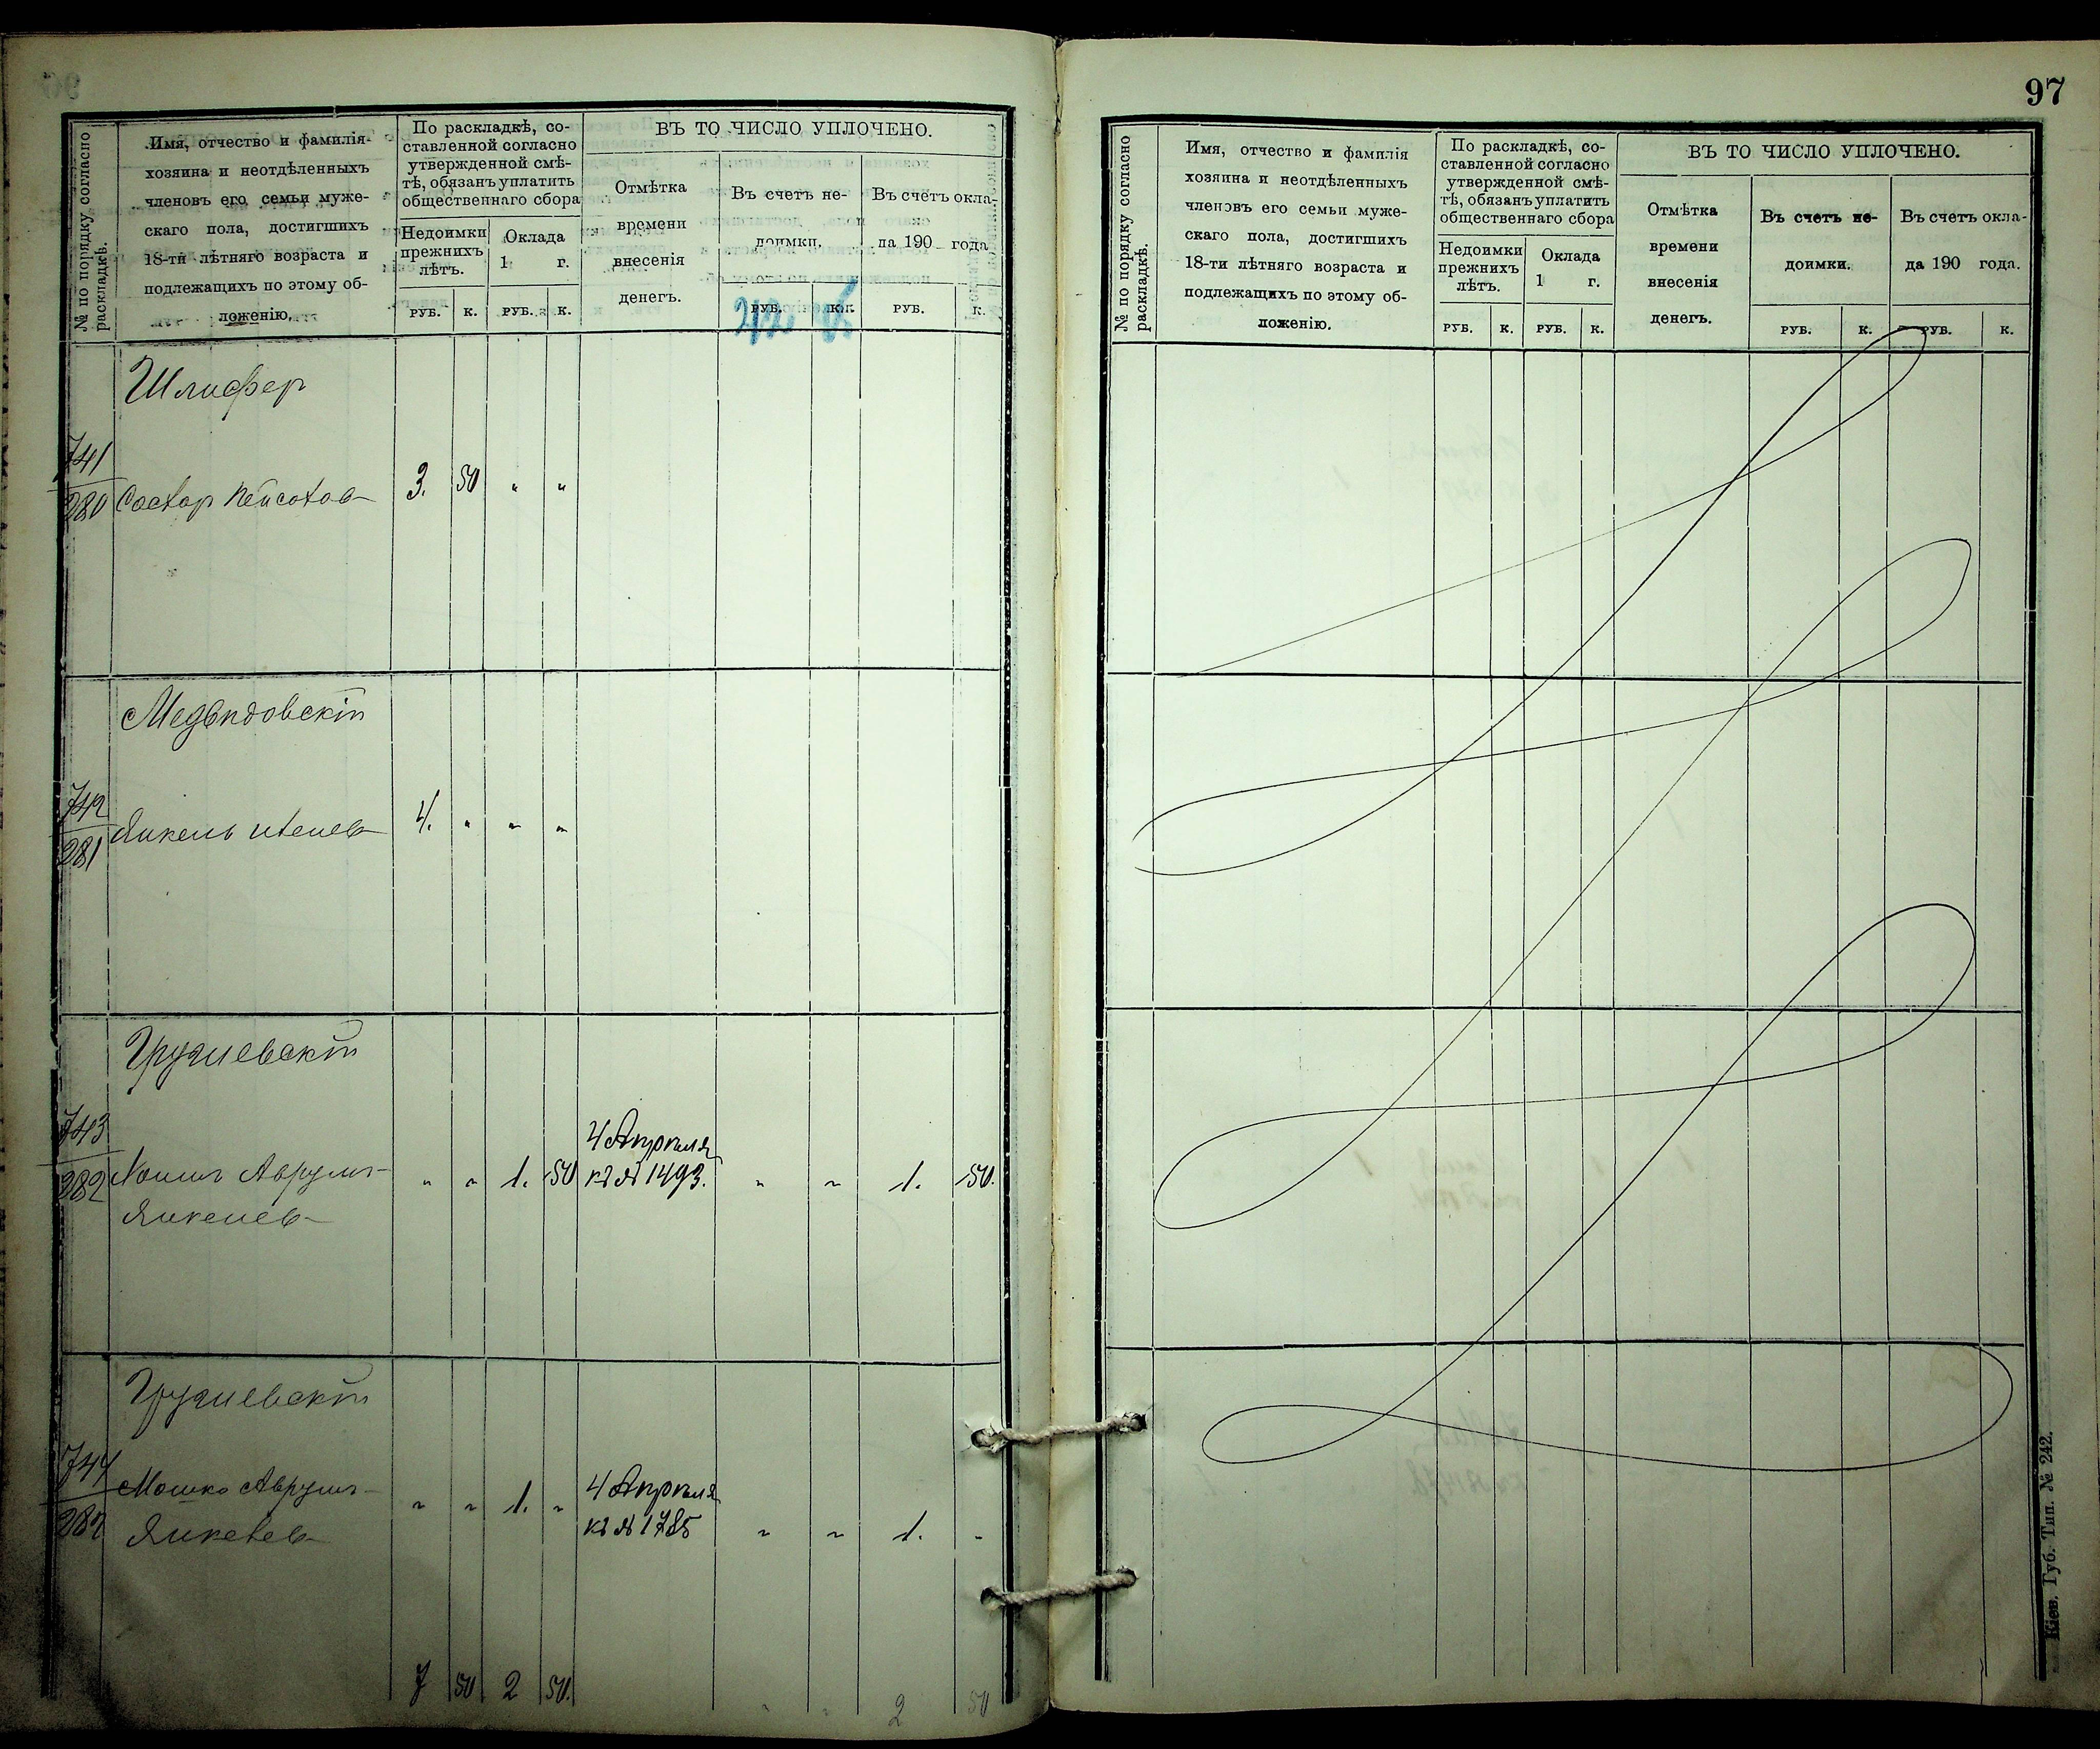 97
№ по порядку согласно раскладкѣ.
Имя, отчество и фамилія
хозяина и неотдѣленныхъ
членовъ его семьи муже-
скаго пола, достигшихъ
18-ти лѣтняго возраста и
подлежащихъ по этому об-
ложенію.
По раскладкѣ, со-
ставленной согласно
утвержденной смѣ-
тѣ, обязанъ уплатить
общественнаго сбора
Недоимки
прежнихъ
лѣтъ.
Оклада
1 г.
РУБ. К. РУБ. К.
ВЪ ТО ЧИСЛО УПЛОЧЕНО.
Отмѣтка
времени
внесенія
денегъ.
Въ счетъ не-
доимки.
РУБ. К.
Въ счетъ окла-
да 190 года
РУБ. К.
Шлифер
741
280
3. 50 " "
Медвидовскій
742
281
Янкель
4. " " "
743
282
Аврумъ-
Янкелев
" " 1. 50
4 Апрѣля
кв № 1493.
" " 1. 50.
744
Мошко Аврумъ-
Янкелев
" " 1. "
4 Апрѣля
кв № 1785
" " 1. "
7 50 2 50.
" " 2 50
№ по порядку согласно раскладкѣ.
Имя, отчество и фамилія
хозяина и неотдѣленныхъ
членовъ его семьи муже-
скаго пола, достигшихъ
18-ти лѣтняго возраста и
подлежащихъ по этому об-
ложенію.
По раскладкѣ, со-
ставленной согласно
утвержденной смѣ-
тѣ, обязанъ уплатить
общественнаго сбора
Недоимки
прежнихъ
лѣтъ.
Оклада
1 г.
РУБ. К. РУБ. К.
ВЪ ТО ЧИСЛО УПЛОЧЕНО.
Отмѣтка
времени
внесенія
денегъ.
Въ счетъ не-
доимки.
РУБ. К.
Въ счетъ окла-
да 190 года.
РУБ. К.
Кіев. Губ. Тип. № 242.